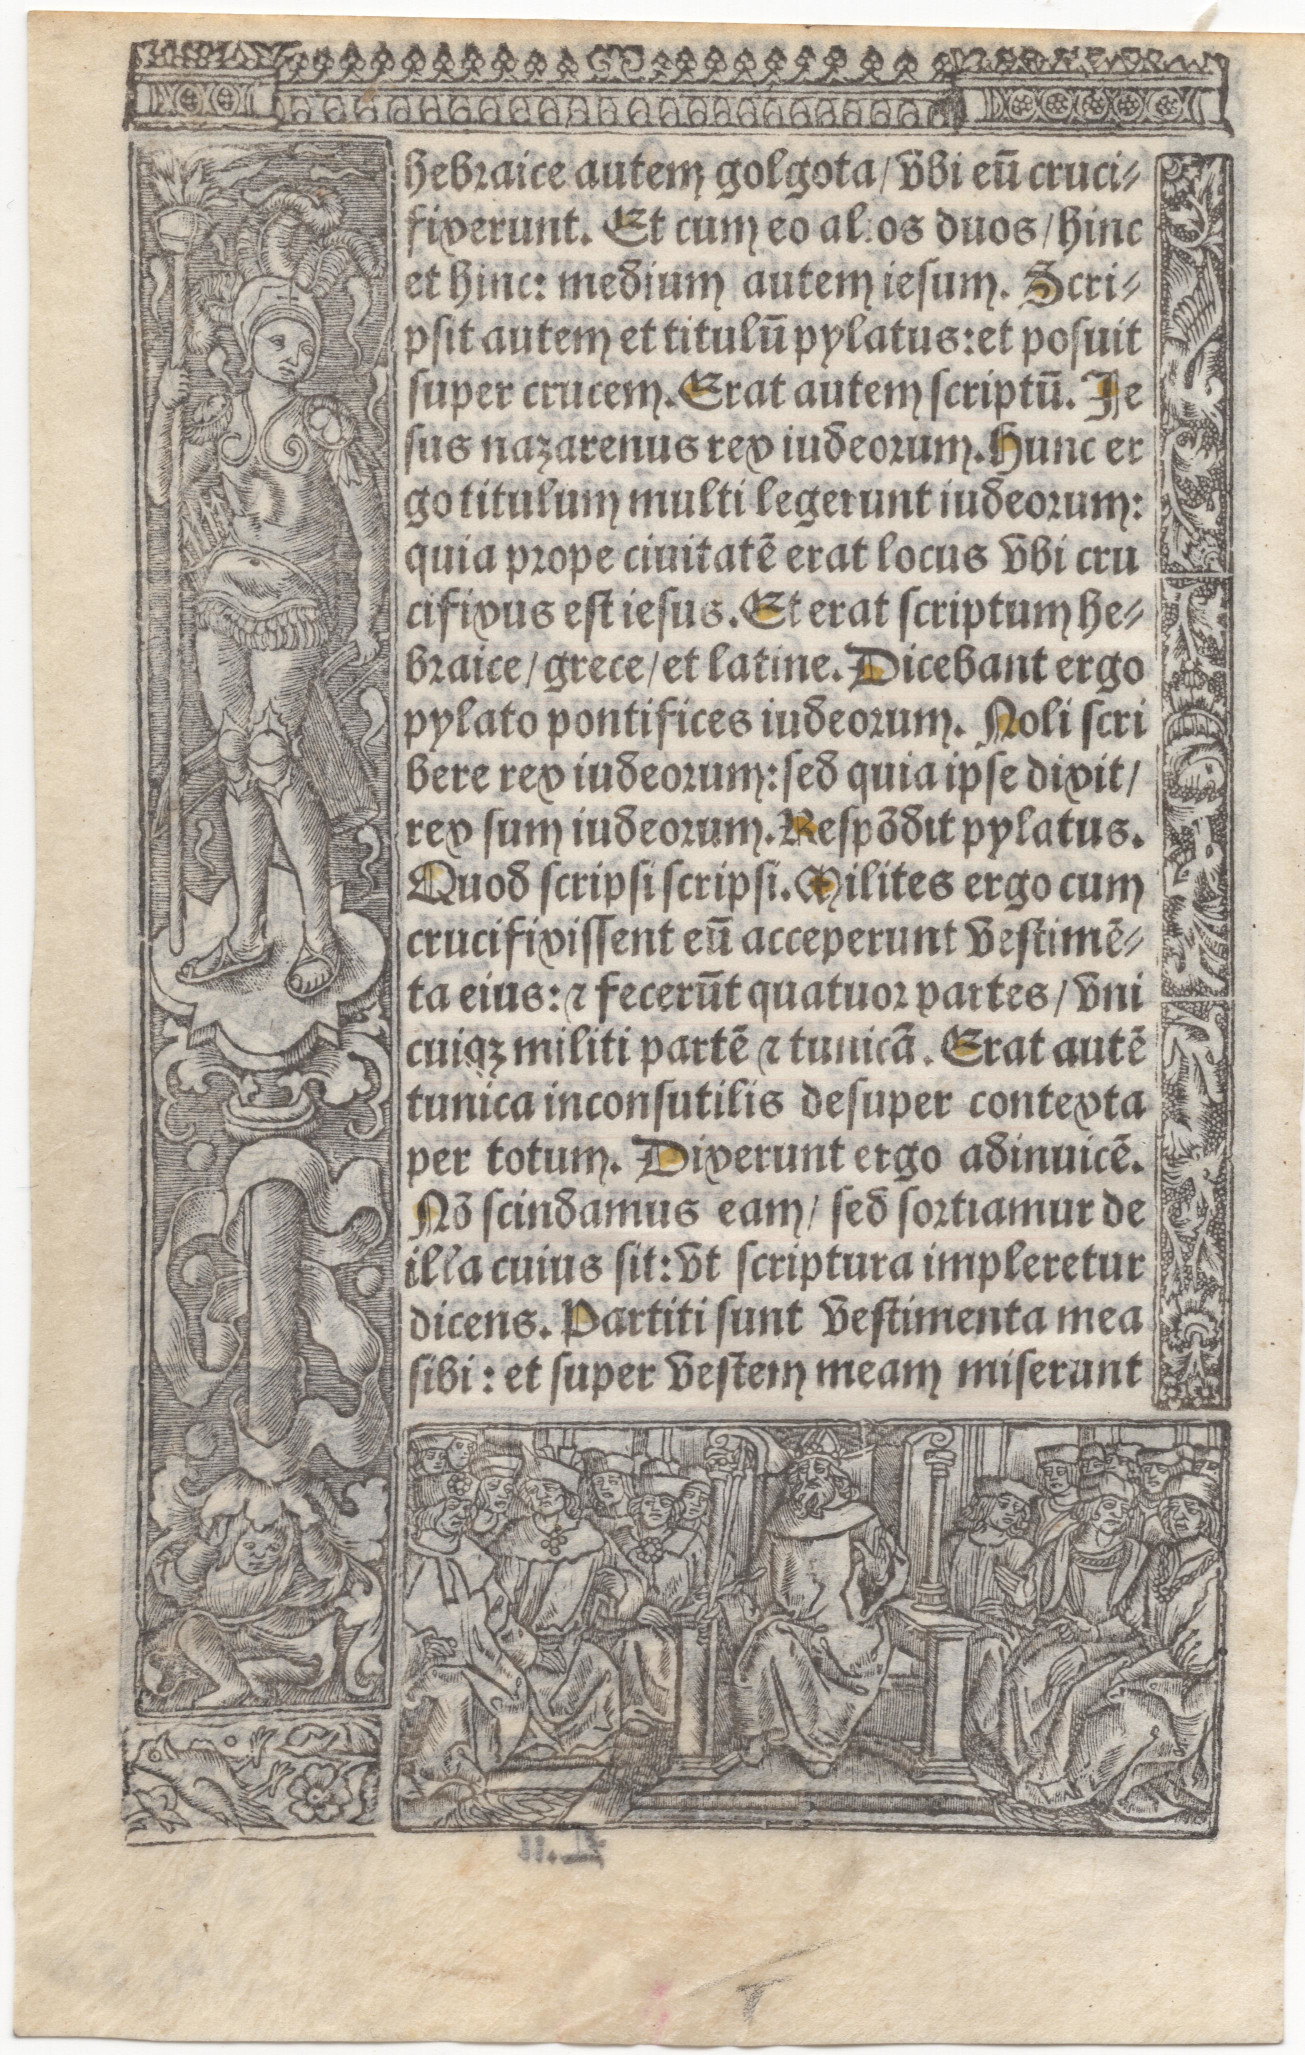 hebraice autem golgota/ vbi eū cruci⸗
fixerunt. Et cum eo alios duos/ hinc
et hinc: medium autem iesum. Scri⸗
psit autem et titulū pylatus: et posuit
super crucem. Erat autem scriptū. Je
sus nazarenus rex iudeorum. Hunc er
go titulum multi legerunt iudeorum:
quia prope ciuitatē erat locus vbi cru
cifixus est iesus. Et erat scriptum he⸗
braice/ grece/ et latine. Dicebant ergo
pylato pontifices iudeorum. Noli scri
bere rex iudeorum: sed quia ipse dixit/
rex sum iudeorum. Respōdit pylatus.
Quod scripsi scripsi. Milites ergo cum
crucifixissent eū acceperunt vestimē⸗
ta eius: ⁊ fecerūt quatuor partes/ vni
cuiqꝫ militi partē ⁊ tunicā. Erat autē
tunica inconsutilis desuper contexta
per totum. Dixerunt ergo adinuicē.
Nō scindamus eam/ sed sortiamur de
illa cuius sit: vt scriptura impleretur
dicens. Partiti sunt vestimenta mea
sibi: et super vestem meam miserunt